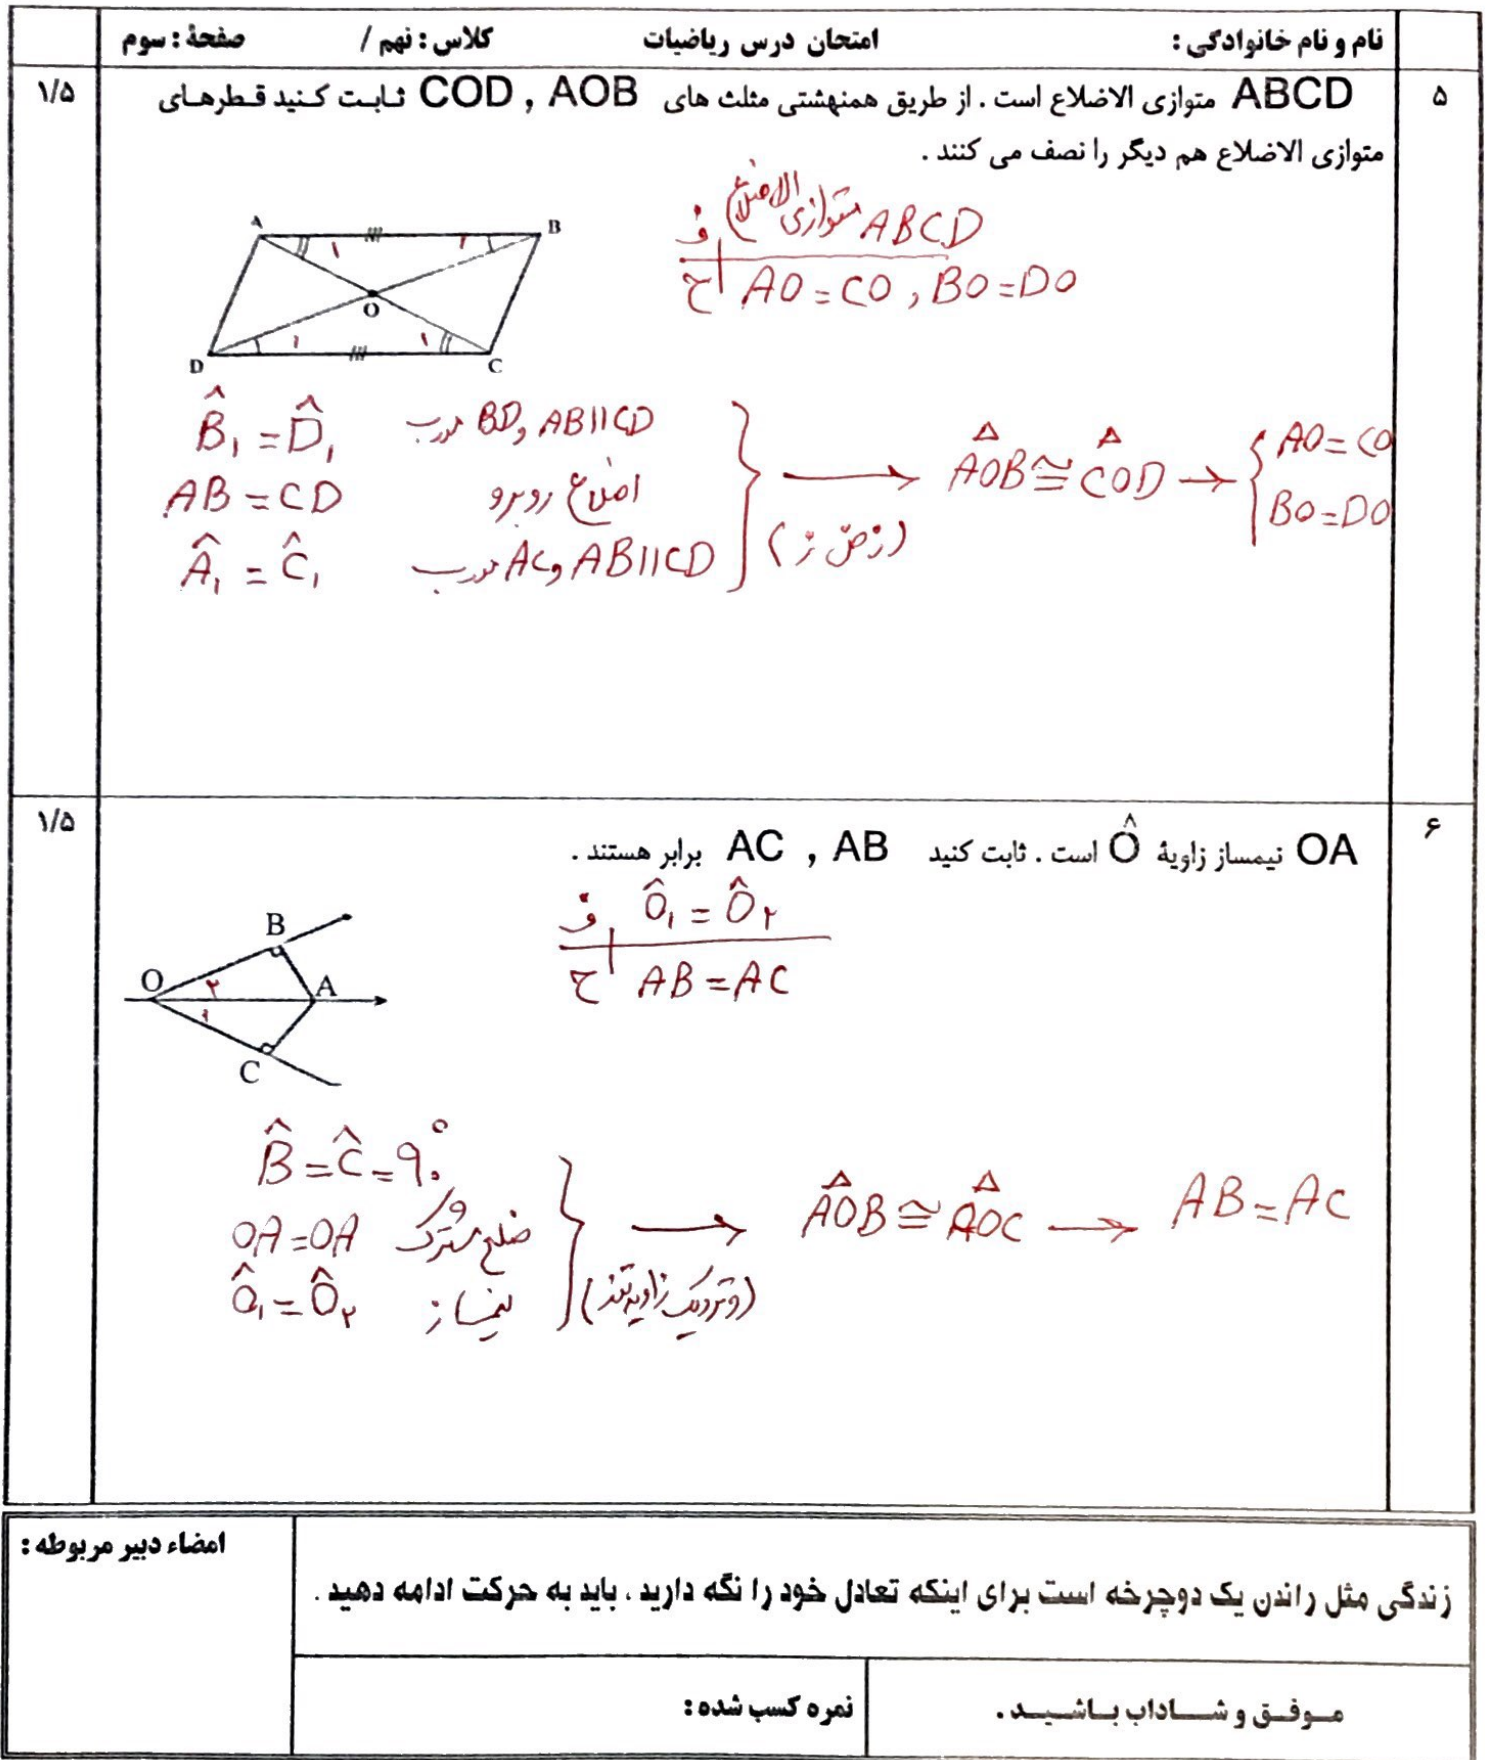 نام و نام خانوادگی : امتحان درس ریاضیات کلاس : نهم / صفحهٔ : سوم
۵ ABCD متوازی الاضلاع است . از طریق همنهشتی مثلث های COD , AOB ثابت کنید قطرهای ۱/۵
متوازی الاضلاع هم دیگر را نصف می کنند .
ف ABCD متوازی الاضلاع
ح AO = CO , BO = DO
A B
۱ ۲
O
۱ ۱
D C
B̂₁ = D̂₁ AB||CD و BD مورب
AB = CD اضلاع روبرو
Â₁ = Ĉ₁ AB||CD و AC مورب
(ز ض ز)
AOB ≅ COD → AO = CO
BO = DO
۶ OA نیمساز زاویهٔ Ô است . ثابت کنید AC , AB برابر هستند . ۱/۵
ف Ô₁ = Ô₂
ح AB = AC
B
O ۲ A
۱
C
B̂ = Ĉ = ۹۰°
OA = OA ضلع مشترک وتر
Ô₁ = Ô₂ نیمساز
(وتر و یک زاویه تند)
AOB ≅ AOC → AB = AC
امضاء دبیر مربوطه :
زندگی مثل راندن یک دوچرخه است برای اینکه تعادل خود را نگه دارید ، باید به حرکت ادامه دهید .
موفق و شاداب باشید . نمره کسب شده :